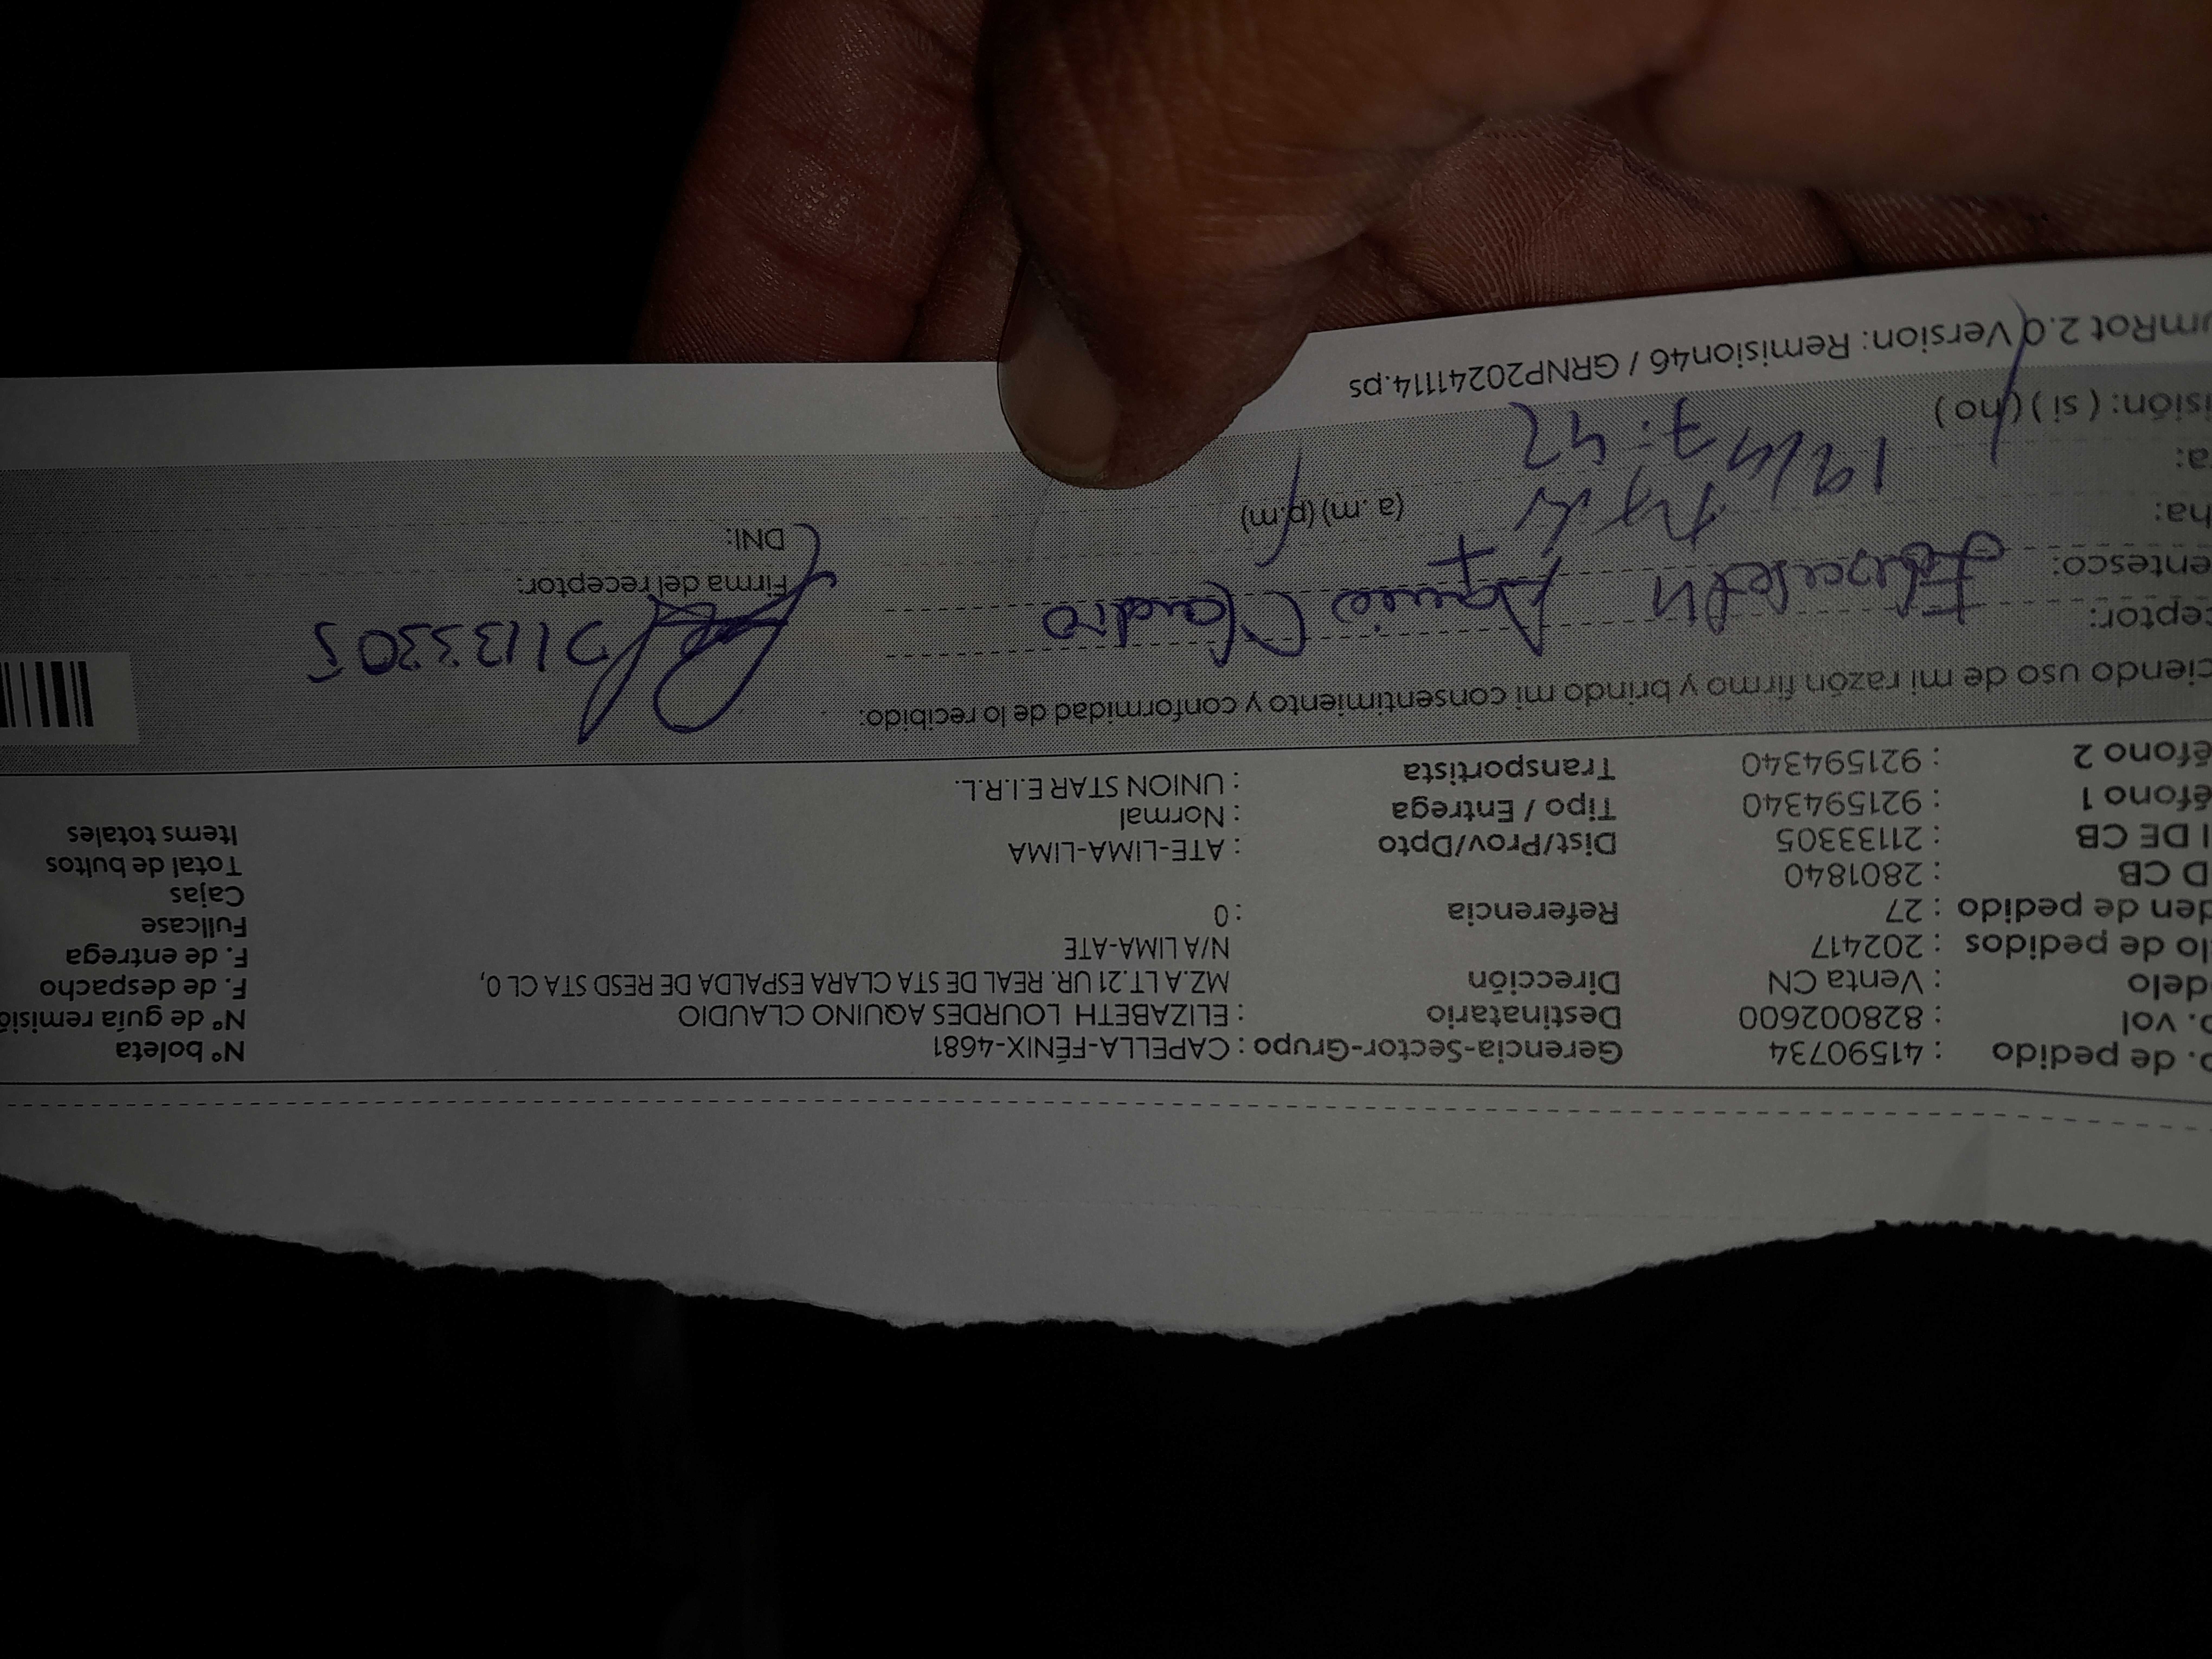 o. de pedido : 41590734 Gerencia-Sector-Grupo : CAPELLA-FÉNIX-4681 N° boleta
o. vol : 828002600 Destinatario : ELIZABETH LOURDES AQUINO CLAUDIO N° de guía remisió
delo : Venta CN Dirección MZ.A LT.21 UR. REAL DE STA CLARA ESPALDA DE RESD STA CL 0, F. de despacho
lo de pedidos : 202417 N/A LIMA-ATE F. de entrega
den de pedido : 27 Referencia : 0 Fullcase
D CB : 2801840 Cajas
I DE CB : 21133305 Dist/Prov/Dpto : ATE-LIMA-LIMA Total de bultos
éfono 1 : 921594340 Tipo / Entrega : Normal Items totales
éfono 2 : 921594340 Transportista : UNION STAR E.I.R.L.
ciendo uso de mi razón firmo y brindo mi consentimiento y conformidad de lo recibido:
ceptor: Aquino Claudio 21133305
entesco: Firma del receptor:
ha: (a. m) (p.m) DNI:
a: 7:42
isión: ( si ) ( no )
umRot 2.0 Version: Remision46 / GRNP20241114.ps